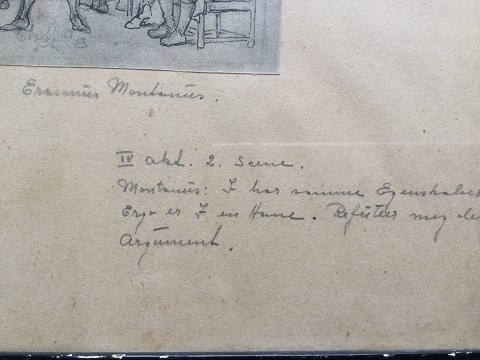 Erasmus Montanus.
IV akt. 2. Scene.
Montanus: I har samme Egenskaber
Ergo er I en Hane. Refuteer mig de
Argument.